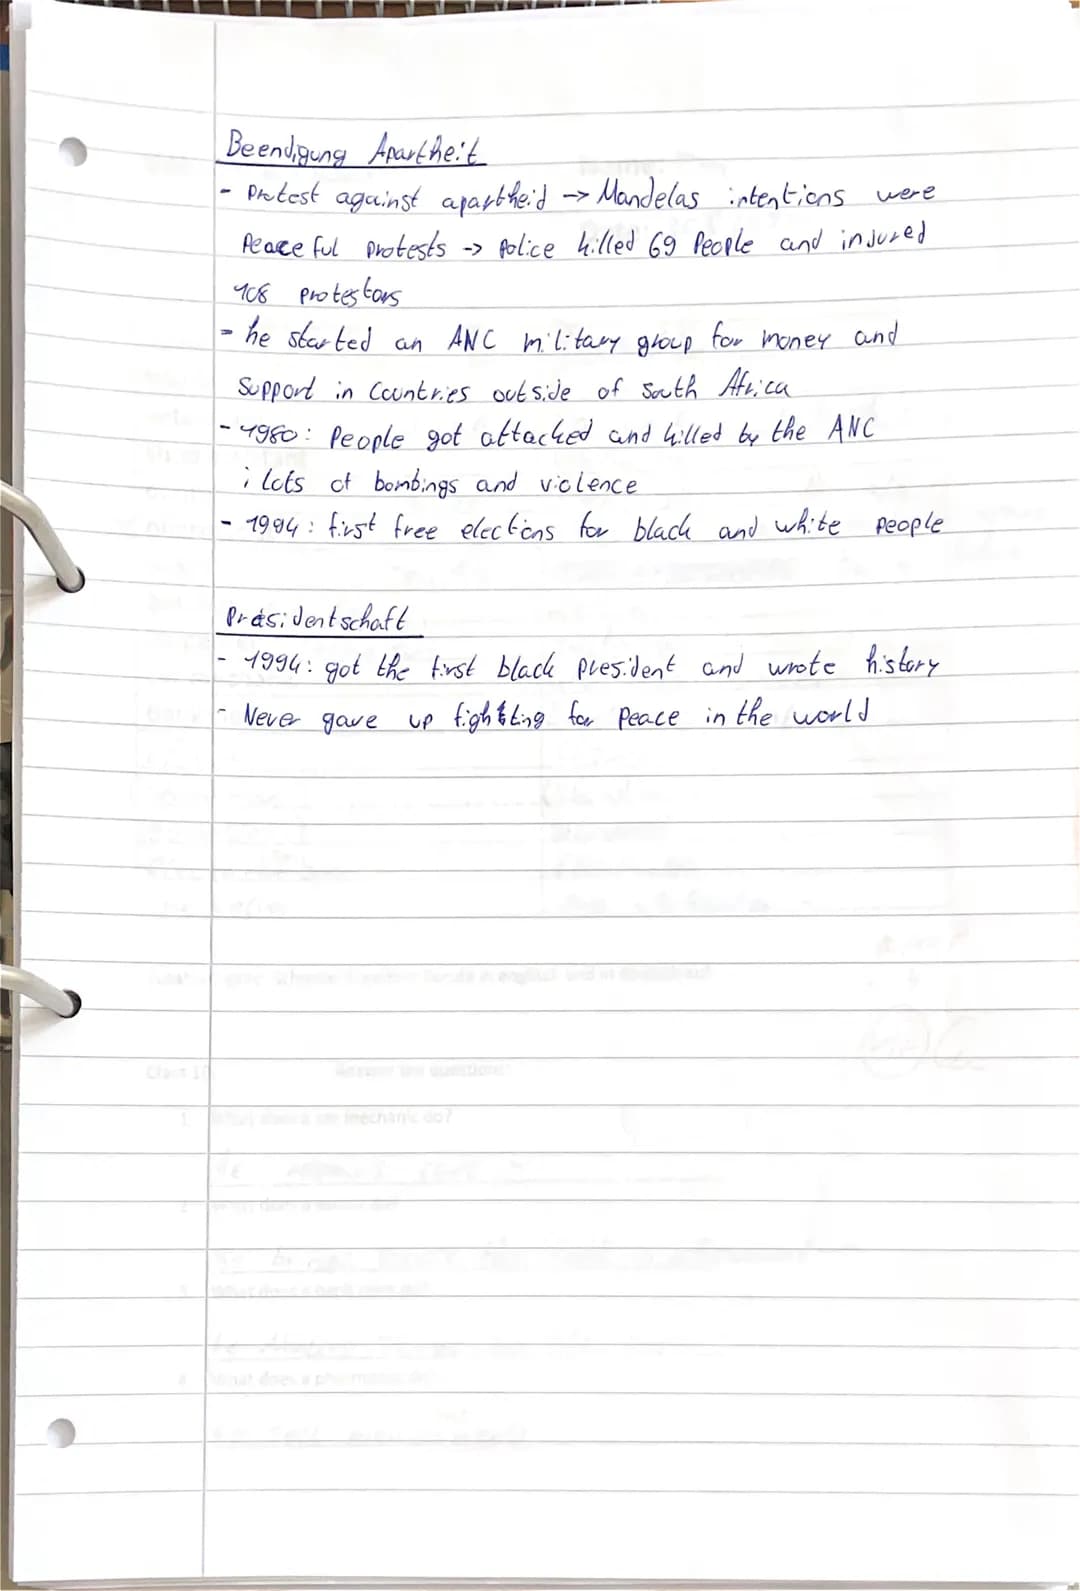 Beendigung Apartheit
- Protest against apartheid -> Mandelas intentions were
Peaceful Protests -> Police killed 69 People and injured
108 protestors
- he started an ANC military group for money and
Support in Countries outside of South Africa
- 1980: People got attacked and killed by the ANC
; lots of bombings and violence
- 1994: first free elections for black and white people
Präsidentschaft
- 1994: got the first black president and wrote history
- Never gave up fighting for peace in the world
Class 10
Answer the questions!
1. What does a car mechanic do?